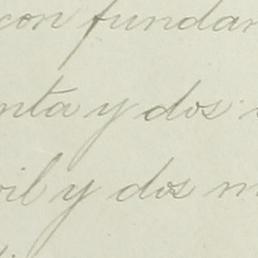 con fundam
nta y dos
il y dos m